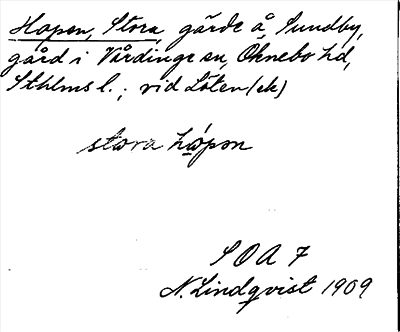 Hopen, Stora, gärde å Sundby,
gård i Vårdinge sn, Öknebo hd,
Sthlms l.; vid Löten (ek)
stora hópon
SOA 7
N. Lindqvist 1909